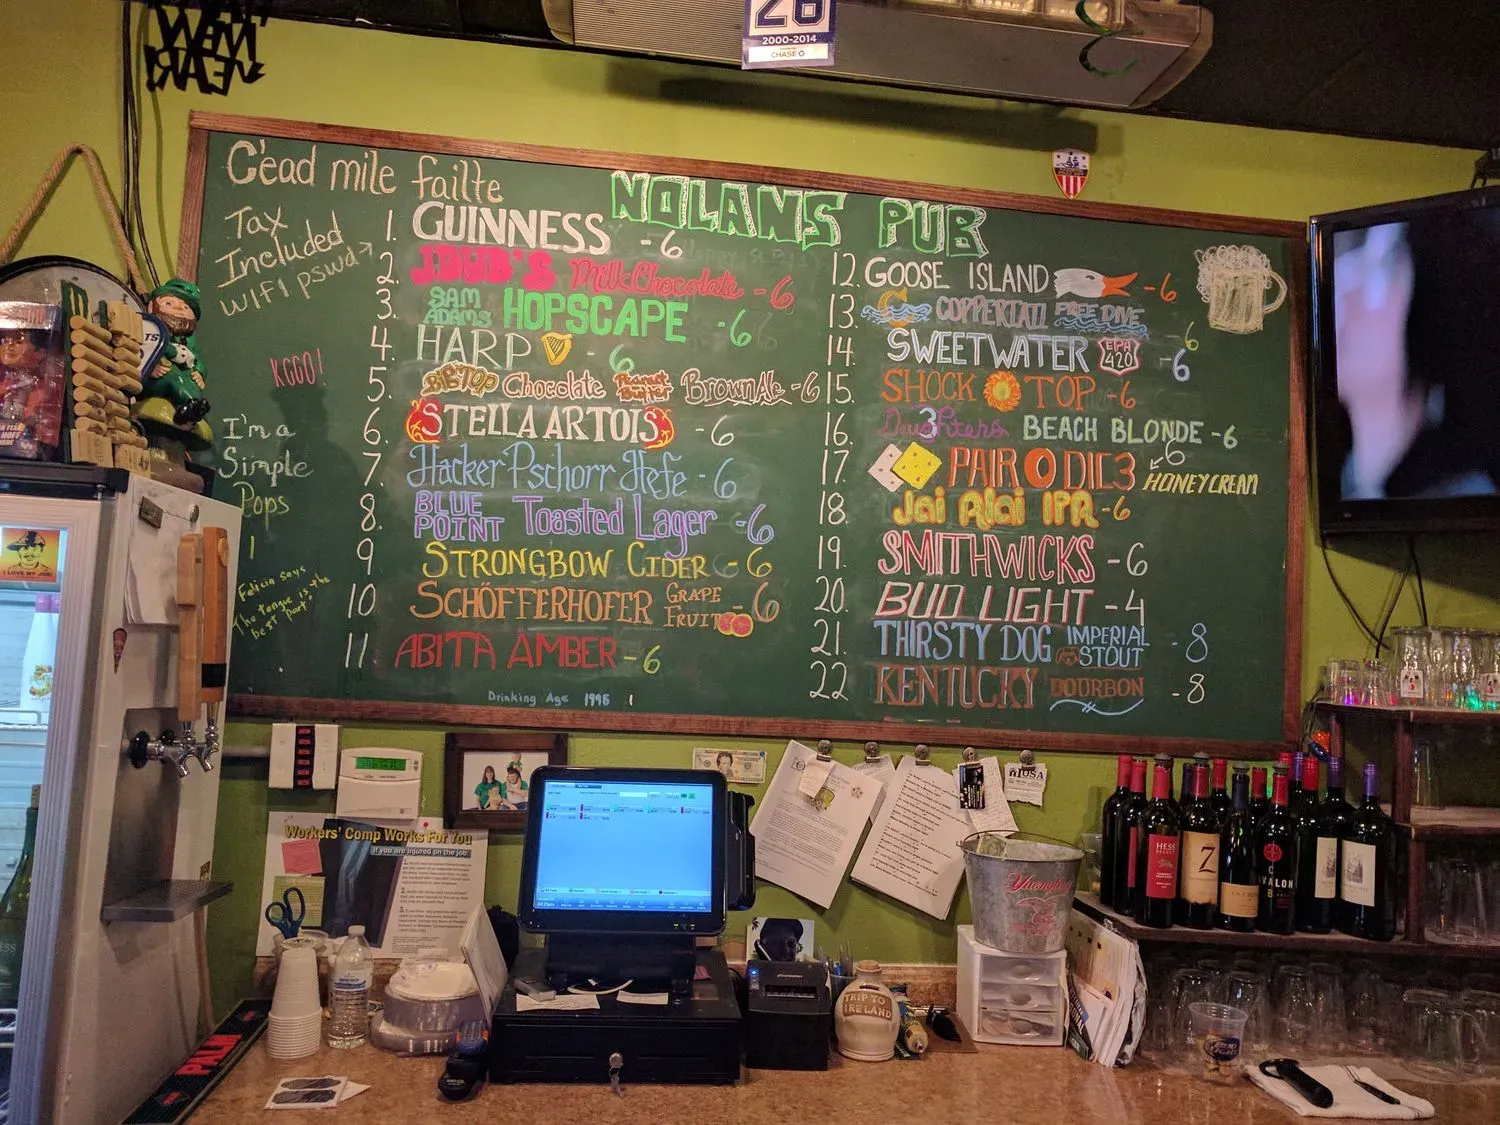 HAPPY
NEW
YEAR
26
2000-2014
CHASE
C'ead mile failte
NOLANS PUB
Tax
Included
WIFI pswd→
KGGO!
I'm a
Simple
Pops
1
Felicia says
"the
The tongue is
best part"
1. GUINNESS - 6
2. Milk Chocolate - 6
3. SAM ADAMS HOPSCAPE - 6
4. HARP - 6
5. BIG TOP Chocolate Peanut Butter Brown Ale - 6
6. STELLA ARTOIS - 6
7. Hacker Pschorr Hefe - 6
8. BLUE POINT Toasted Lager - 6
9 STRONGBOW CIDER - 6
10. SCHÖFFERHOFER GRAPE FRUIT - 6
11. ABITA AMBER - 6
Drinking Age 1996
12. GOOSE ISLAND - 6
13. COPPERTAIL FREE DIVE 6
14. SWEETWATER EPA 420 - 6
15. SHOCK TOP - 6
16. 3 Daughters BEACH BLONDE - 6
17. PAIR O DICE 3 6 HONEY CREAM
18. Jai Alai IPA - 6
19. SMITHWICKS - 6
20. BUD LIGHT - 4
21. THIRSTY DOG IMPERIAL STOUT - 8
22. KENTUCKY BOURBON - 8
I LOVE MY JOB!
Workers' Comp Works For You
If you are injured on the job
PALM
TRIP TO
IRELAND
Yuengling
IOSA
HESS
Z
AVALON
BUD LIGHT